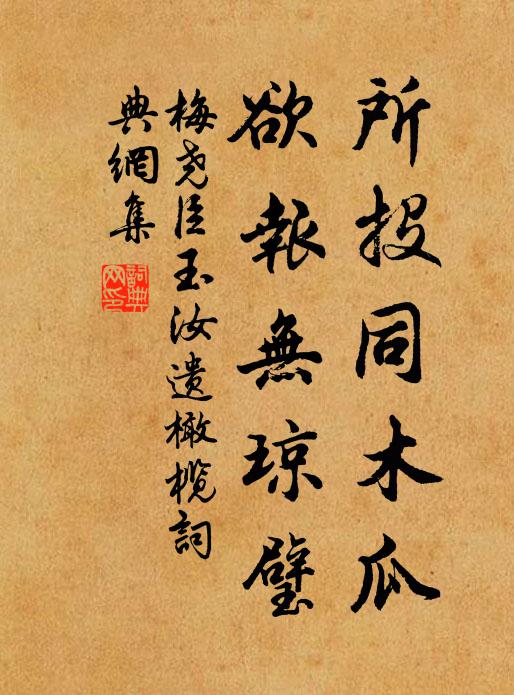 所投同木瓜
欲報無琼璧
梅尧臣玉汝遗橄榄詞
典網集
詞典网印